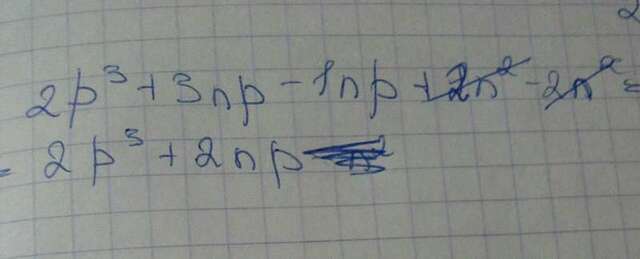 2p³ + 3np - 1np + 2n² - 2n² =
= 2p³ + 2np